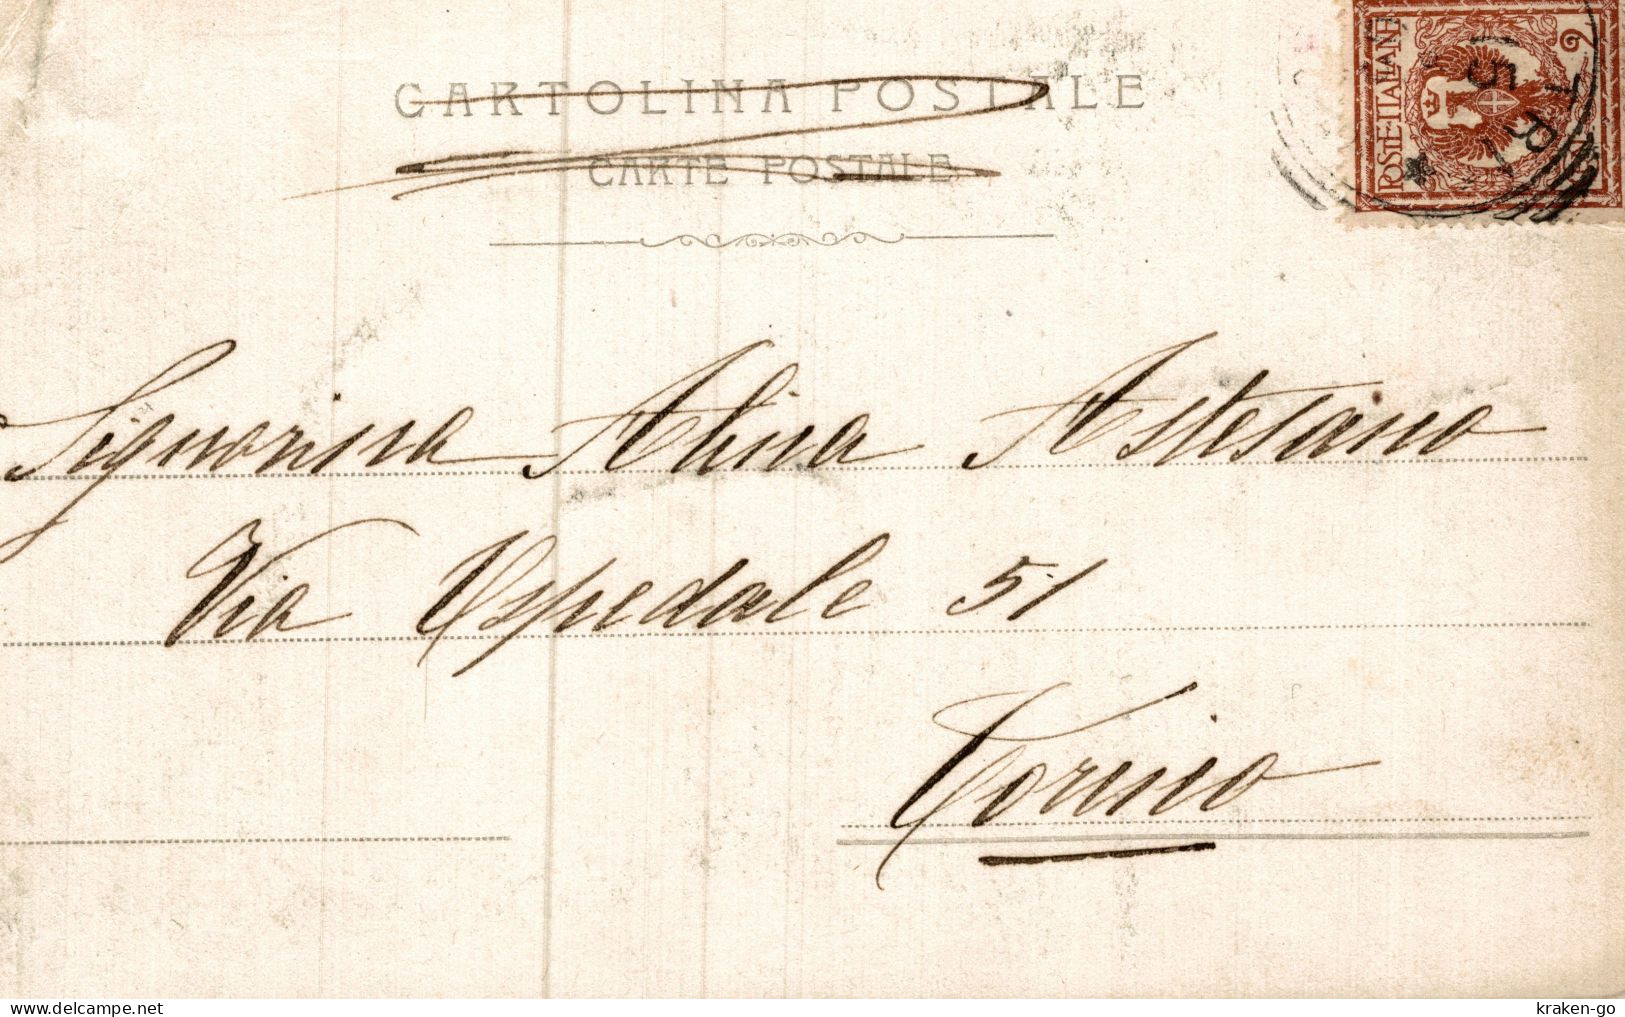 CARTOLINA POSTALE
CARTE POSTALE
POSTE ITALIANE
2
Signorina Alina Astesano
Via Ospedale 51
Torino
www.delcampe.net
kraken-go